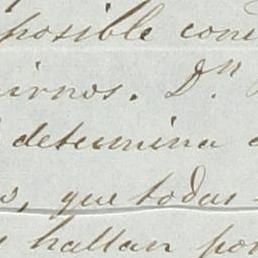 posible con
irnos. D.n
determina
que todas
hallan por